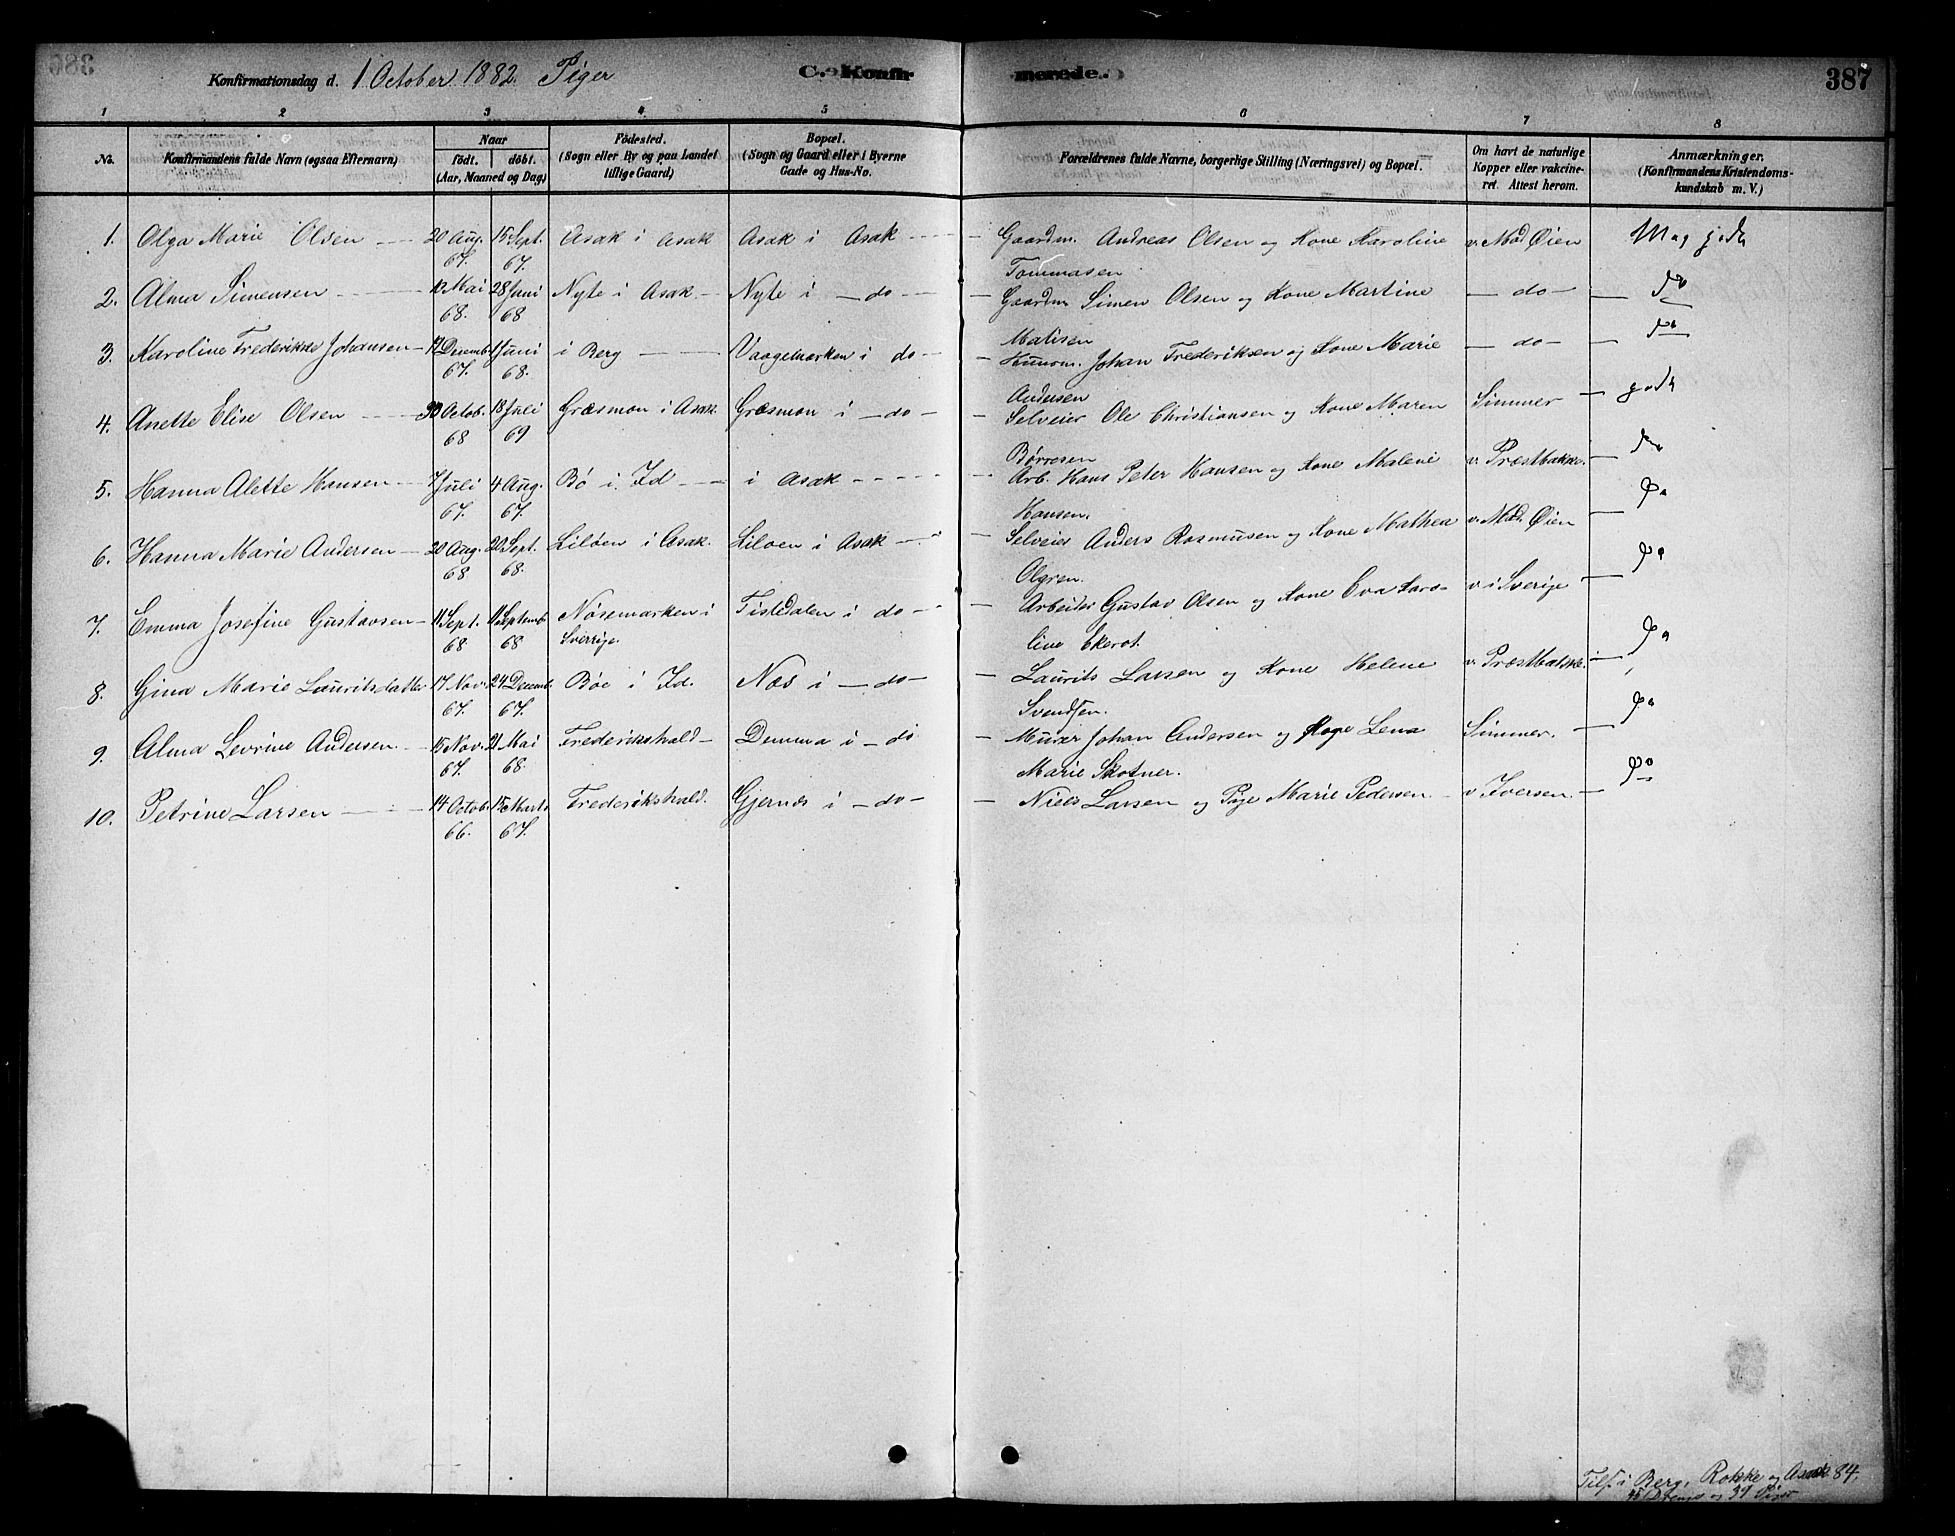 Konfirmationsdag d. 1 October 1882. Piger C. Konfirmerede. 387
1 2 3 4 5 6 7 8
No. Konfirmandens fulde Navn (ogsaa Efternavn) Naar født. døbt. (Aar, Maaned og Dag) Fødested. (Sogn eller By og paa Landet tillige Gaard) Bopæl. (Sogn og Gaard eller i Byerne Gade og Hus-No. Forældrenes fulde Navne, borgerlige Stilling (Næringsvei) og Bopæl. Om havt de naturlige Kopper eller vakcineret. Attest herom. Anmærkninger. (Konfirmandens Kristendomskundskab m. V.)
1. Olga Marie Olsen 20 Aug. 67. 15 Sept. 67. Asak i Asak Asak i Asak Gaardm. Andreas Olsen og Kone Karoline Tommasen v. Mad Øien Mag godt
2. Alma Simensen 12 Mai 68. 28 Juni 68 Nyte i Asak Nyte i do Gaardm Simen Olsen og Kone Martine Matisen do do
3. Karoline Frederikke Johansen 17 Decemb. 67. 1 Juni 68. i Berg Vaagemarken i do Husm. Johan Frederiksen og Kone Marie Andersen do do
4. Anette Elise Olsen 30 Octob. 68 18 Juli 69 Græsmon i Asak Græsmon i do Selveier Ole Christiansen og Kone Maren Børresen Simmer godt
5. Hanna Alette Hansen 7 Juli 67. 4 Aug. 67. Bø i Id i Asak Arb. Hans Peter Hansen og Kone Malene Hansen. v. Præstbakke. do
6. Hanna Marie Andersen 20 Aug. 68 20 Sept. 68. Liløen i Asak. Liloen i Asak Selveier Anders Rasmusen og Kone Mathea Olgren. v. Mad. Øien Do
7. Emma Josefine Gustavsen 11 Sept. 68 11 Septemb. 68 Nøsemarken i Sverrige Tistedalen i do Arbeider Gustav Olsen og Kone Eva Karoline Ekerot. v. i Sverige Do
8. Gina Marie Lauritsdatter 17 Nov. 67. 24 Decemb. 67. Bøe i Id. Næs i do Laurits Larsen og Kone Helene Svendsen. v. Præstbakke Do
9. Alma Levrine Andersen 15 Nov. 67. 21 Mai 68. Frederikshald Demma i do Murer Johan Andersen og Kone Lena Marie Skotner. Simmer. Do
10. Petrine Larsen 14 Octob. 66. 15 Marts 67. Frederikshald. Gjernæs i do Niels Larsen og Pige Marie Pedersen v Iversen Do
Tils. i Berg, Rokke og Asak 84.
45 Drenge og 39 Piger